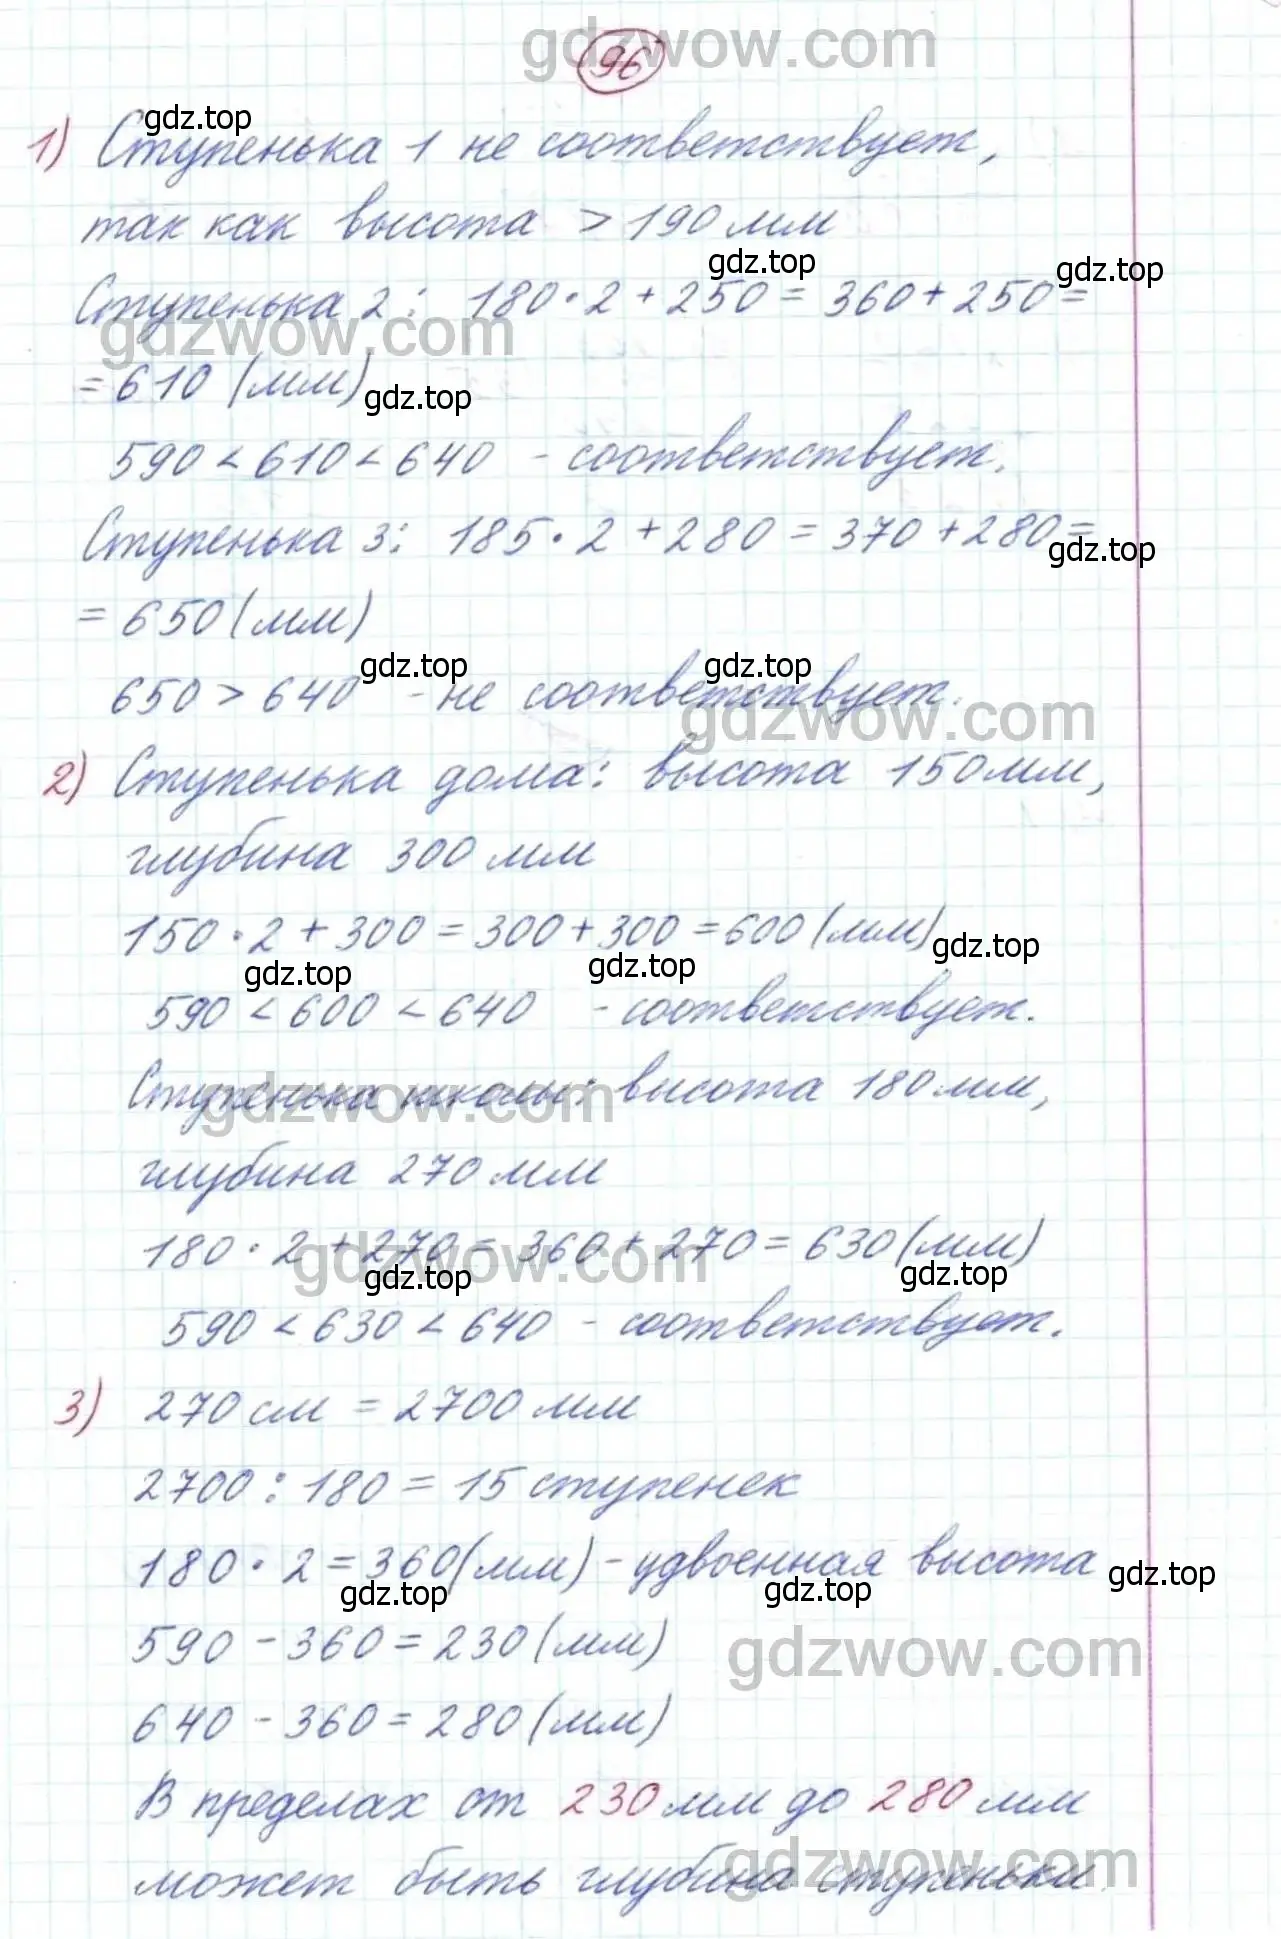 96
1) Ступенька 1 не соответствует,
так как высота > 190 мм
Ступенька 2: 180 · 2 + 250 = 360 + 250 =
= 610 (мм)
590 < 610 < 640 - соответствует.
Ступенька 3: 185 · 2 + 280 = 370 + 280 =
= 650 (мм)
650 > 640 - не соответствует.
2) Ступенька дома: высота 150 мм,
глубина 300 мм
150 · 2 + 300 = 300 + 300 = 600 (мм)
590 < 600 < 640 - соответствует.
Ступенька школы: высота 180 мм,
глубина 270 мм
180 · 2 + 270 = 360 + 270 = 630 (мм)
590 < 630 < 640 - соответствует.
3) 270 см = 2700 мм
2700 : 180 = 15 ступенек
180 · 2 = 360 (мм) - удвоенная высота
590 - 360 = 230 (мм)
640 - 360 = 280 (мм)
В пределах от 230 мм до 280 мм
может быть глубина ступеньки.
gdzwow.com
gdz.top
gdz.top
gdz.top
gdzwow.com
gdz.top
gdz.top
gdz.top
gdz.top
gdzwow.com
gdz.top
gdz.top
gdz.top
gdzwow.com
gdzwow.com
gdz.top
gdz.top
gdz.top
gdz.top
gdz.top
gdzwow.com
gdzwow.com